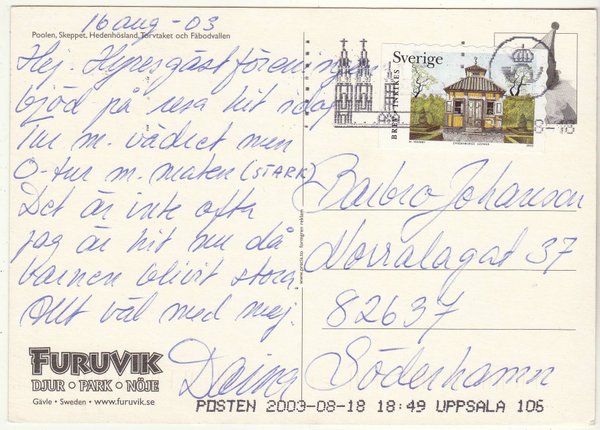 16 aug - 03
Poolen, Skeppet, Hedenhösland, Torvtaket och Fäbodvallen
Hej. Hyresgästföreningen
bjöd på resa hit idag
Tur m. vädret men
O-tur m. maten (STARK)
Det är inte ofta
jag är hit nu då
barnen blivit stora
Allt väl med mej.
FURUVIK
DJUR • PARK • NÖJE
Gävle • Sweden • www.furuvik.se
Sverige
BREV INRIKES
Barbro Johansson
Norralagat 37
82637
Söderhamn
POSTEN 2003-08-18 18:49 UPPSALA 106